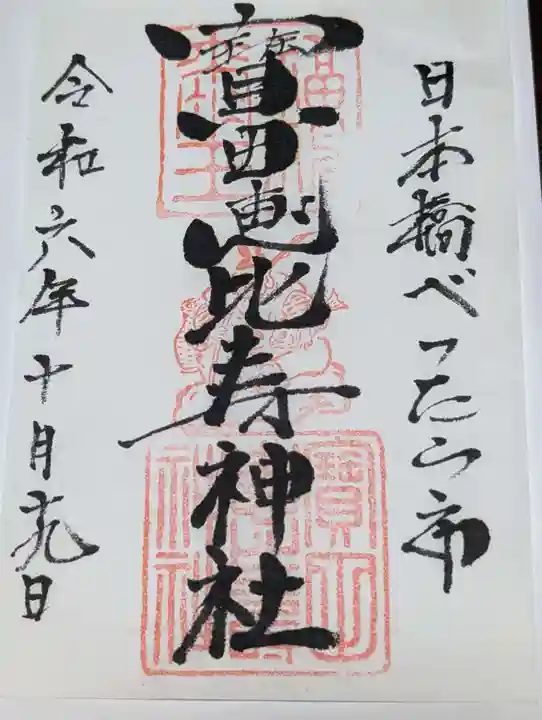 日本橋べったら市
寶田恵比寿神社
令和六年十月十九日